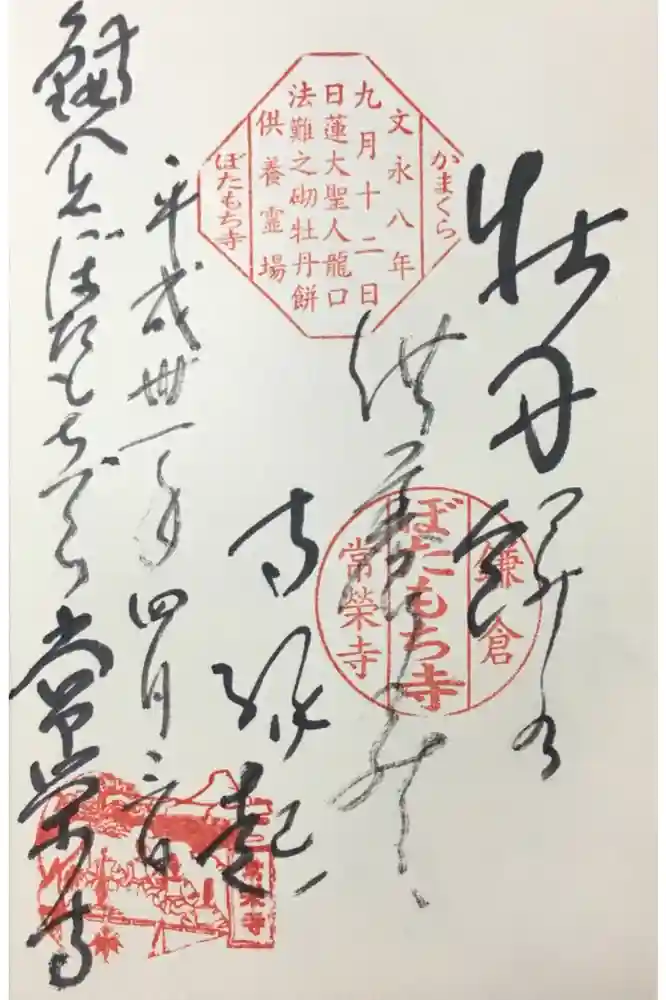 牡丹餅
供養
寺縁起
平成卅一年四月
鎌倉
ぼたもちでら
常榮寺
かまくら
文永八年
九月十二日
日蓮大聖人龍口
法難之砌牡丹餅
供養霊場
ぼたもち寺
鎌倉
ぼたもち寺
常榮寺
常榮寺